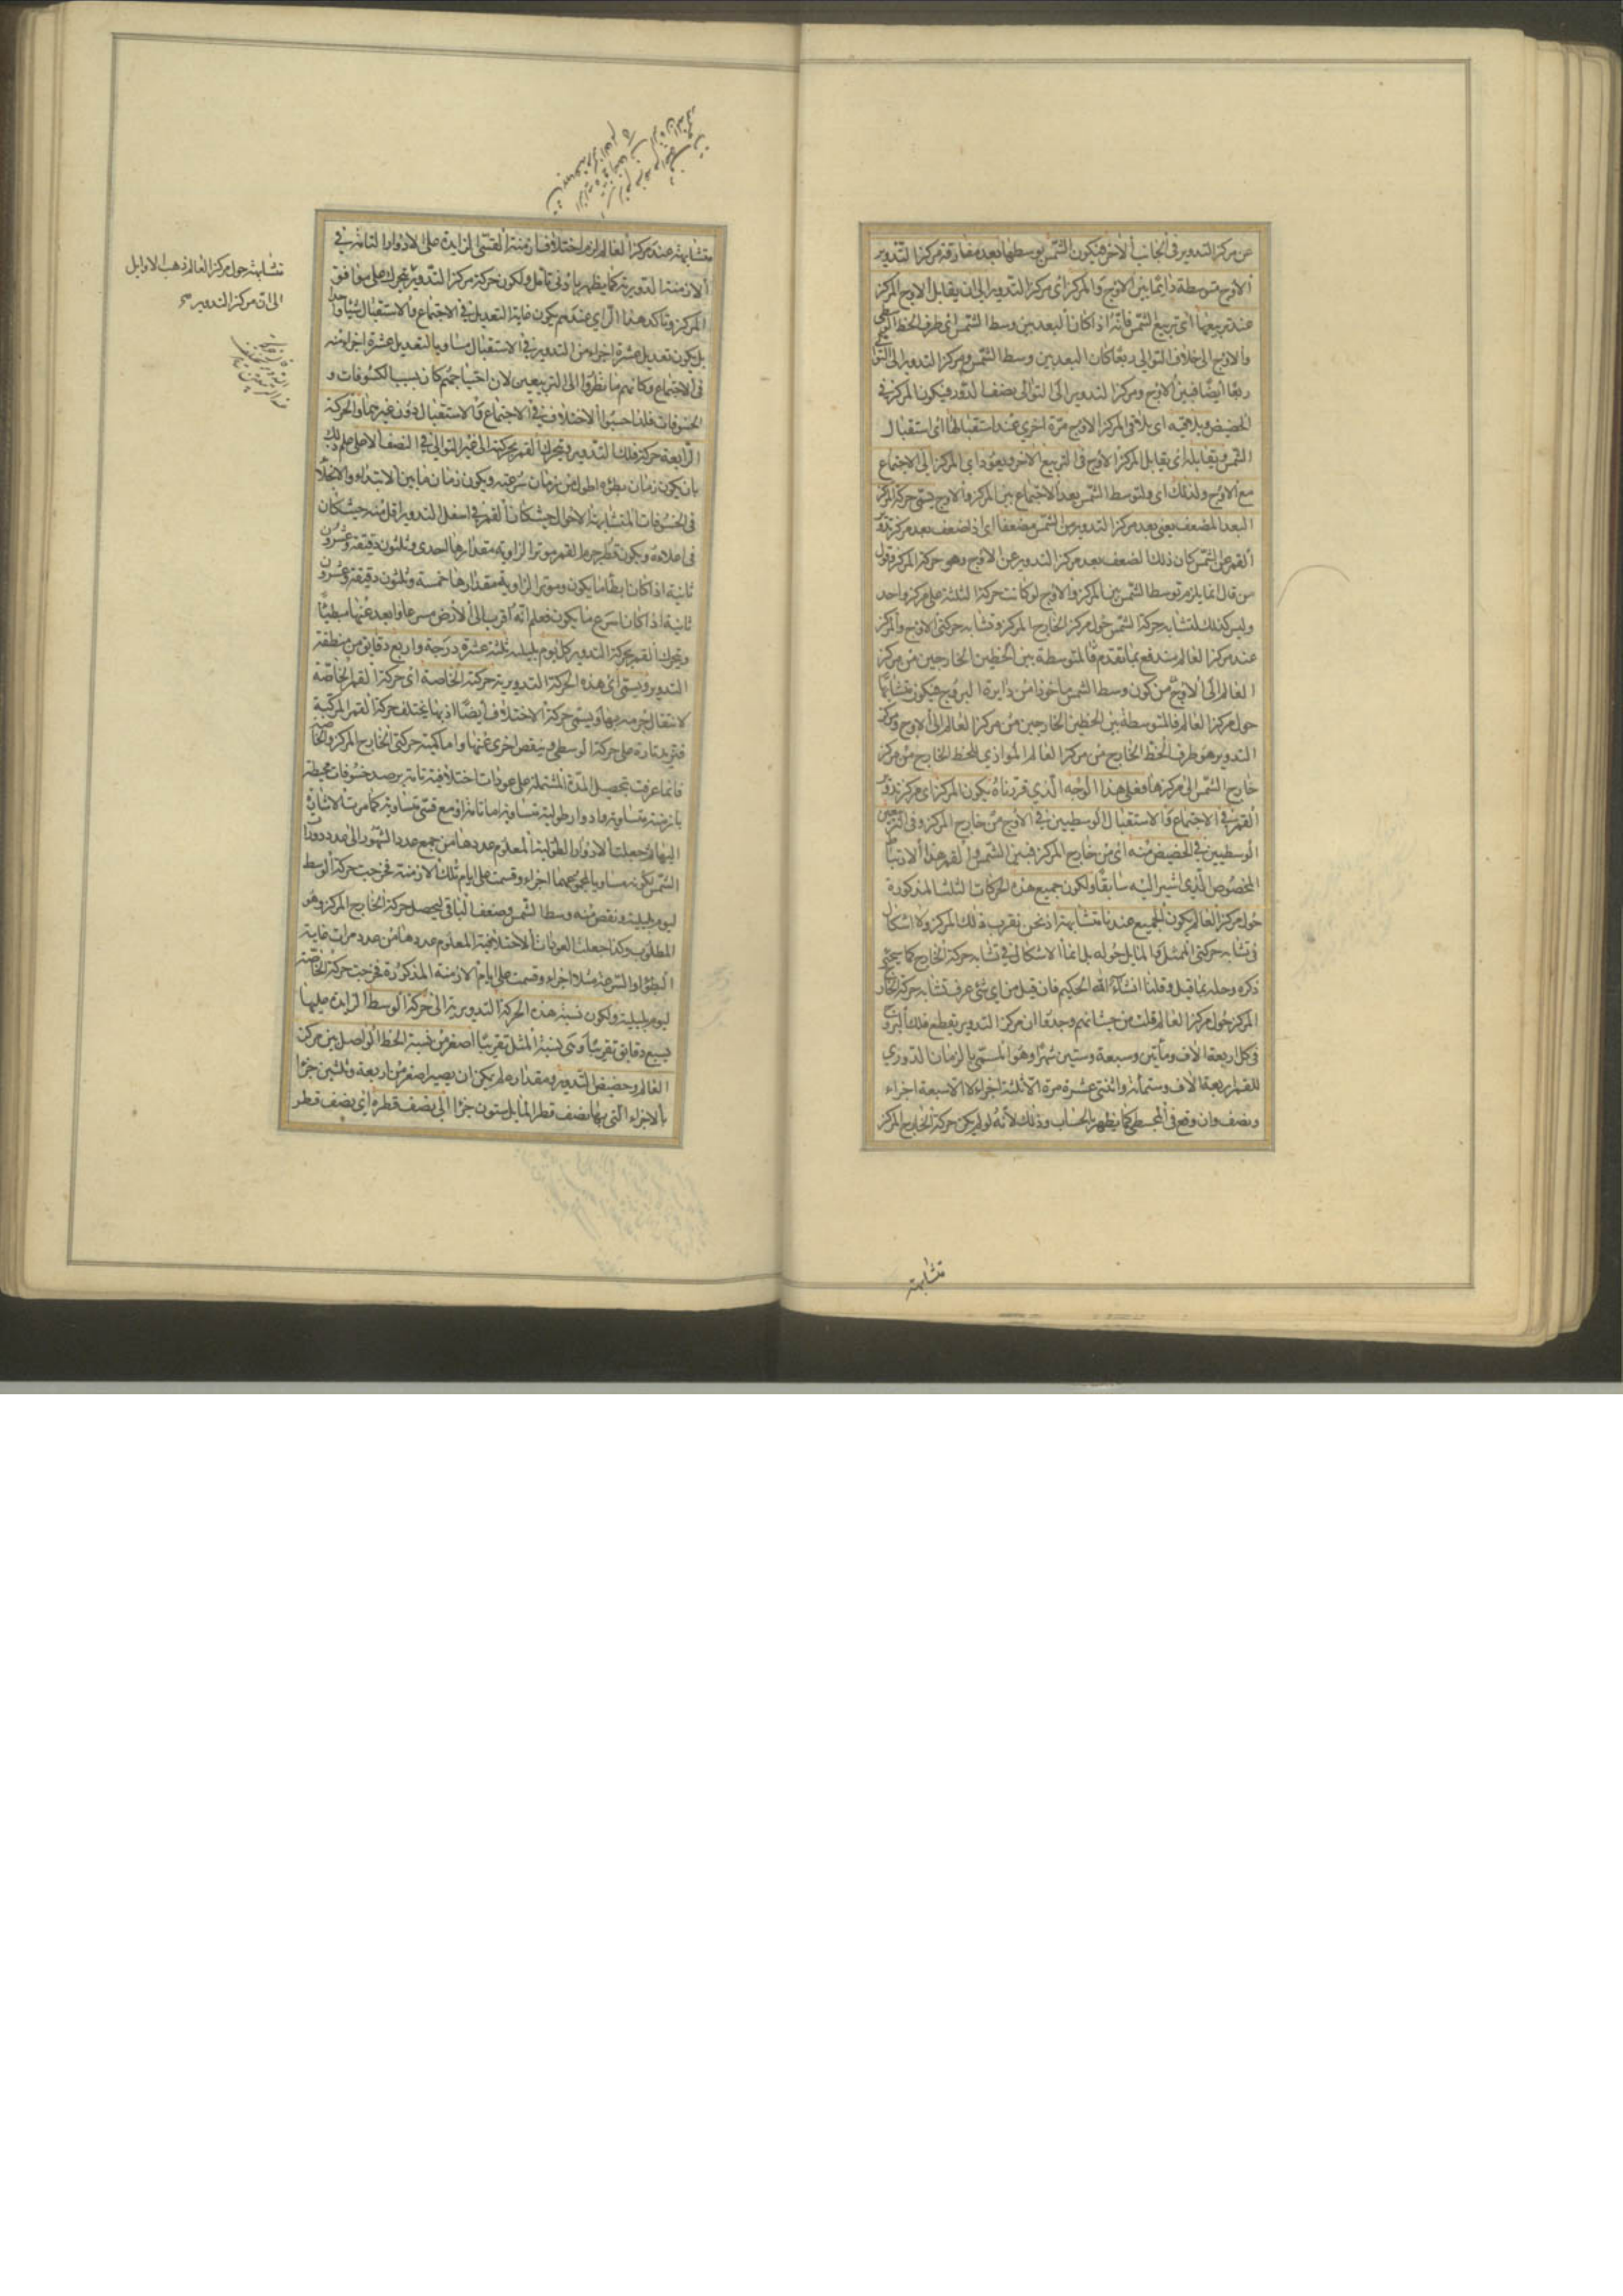 عن مركز التدوير فى الجانب الاخر فيكون الشمس بوسطها بعد مفارقة مركز التدوير
الاوج متوسطة دائما بين الاوج والمركز اى مركز التدوير الى ان يقابل الاوج المركز
عند تربيعها اى تربيع الشمس فانه اذا كان البعد بين وسط الشمس اى طرف الخط الوسطى
والاوج الى خلاف التوالى ربعا كان البعد بين وسط الشمس ومركز التدوير الى التوالى
ربعا ايضا فبين الاوج ومركز التدوير الى التوالى نصف الدور فيكون المركز فى
الحضيض ويلاقيه اى يلاقى المركز الاوج مرة اخرى عند استقبالها اى استقبال
الشمس ويقابله اى يقابل المركز الاوج فى التربيع الاخر ويعود اى المركز الى الاجتماع
مع الاوج ولذلك اى ولتوسط الشمس بعد الاجتماع بين المركز والاوج يسمى حركة المركز
البعد المضعف يعنى بعد مركز التدوير من الشمس مضعفا اى اذا ضعف بعد مركز تدوير
القمر عن الشمس كان ذلك الضعف بعد مركز التدوير عن الاوج وهو حركة المركز وقول
من قال انما يلزم توسط الشمس بين المركز والاوج لو كانت حركة الثلثة على مركز واحد
وليس كذلك لتشابه حركة الشمس حول مركز الخارج المركز وتشابه حركتى الاوج والمركز
عند مركز العالم مندفع بما تقدم فالمتوسطة بين الخطين الخارجين من مركز
العالم الى الاوج من كون وسط الشمس ماخوذا من دايرة البروج فيكون متشابها
حول مركز العالم فالمتوسطة بين الخطين الخارجين من مركز العالم الى الاوج ومركز
التدوير هو طرف الخط الخارج من مركز العالم الموازى للخط الخارج من مركز
خارج الشمس الى مركزها فعلى هذا الوجه الذى قررناه يكون المركز اى مركز تدوير
القمر فى الاجتماع والاستقبال الوسطيين فى الاوج من خارج المركز وفى التربيعين
الوسطيين فى الحضيض منه اى من خارج المركز فبين الشمس والقمر هذا الارتباط
المخصوص الذى اشير اليه سابقا ولكون جميع هذه الحركات الثلث المذكورة
حول مركز العالم يكون الجميع عندنا متشابهة اذ نحن بقرب ذلك المركز ولا اشكال
فى تشابه حركتى الممثل والمايل حوله بل انما الاشكال فى تشابه حركة الخارج كما سيجئ
ذكره وحله بما قيل وقلنا انشاء الله الحكيم فان قيل من اى شئ عرف تشابه حركة الخارج
المركز حول مركز العالم قلت من حيث انهم وجدوا ان مركز التدوير يقطع فلك البروج
فى كل اربعة الاف ومأتين وسبعة وستين شهرا وهو المسمى بالزمان الدورى
للقمر اربعة الاف وستمائة واثنتى عشرة مرة الا ثلثة اجزاء لا الا سبعة اجزاء
ونصف وان وقع فى المجسطى كما يظهر بالحساب وذلك لانه لو لم يكن حركة الخارج المركز
متشابهة
متشابهة عند مركز العالم لزم اختلاف ازمنة القسى الزايدة على الادوار التامة فى
الازمنة الدورية كما يظهر بادنى تامل ولكون حركة مركز التدوير غير على موافق
المركز وتأكد هذا الراى عندهم بكون غاية التعديل فى الاجتماع والاستقبال شيئا واحدا
بل يكون تعديل عشرة اجزاء من التدوير فى الاستقبال مساويا لتعديل عشرة اجزاء منه
فى الاجتماع وكانهم ما نظروا الى التربيعين لان احتياجهم كان بسبب الكسوفات و
الخسوفات فلذا حسبوا الاختلاف فى الاجتماع والاستقبال دون غيرهما والحركة
الرابعة حركة فلك التدوير ويتحرك القمر بحركته الى غير التوالى فى النصف الاعلى علم ذلك
بان يكون زمان بطؤه اطول من زمان سرعته ويكون زمان ما بين الابتداء والانجلاء
فى الخسوفات المتشابهة الاحوال حيث كان القمر فى اسفل التدوير اقل منه حيث كان
فى اعلاه ويكون قطر جرم القمر موتر الزاوية مقدارها احدى وثلثون دقيقة وعشرون
ثانية اذا كان ابطأ ما يكون وموتر الزاوية مقدارها خمسة وثلثون دقيقة وعشرون
ثانية اذا كان اسرع ما يكون فعلم انه اقرب الى الارض مسرعا وابعد عنها مبطئا
ويتحرك القمر بحركة التدوير كل يوم بليلته ثلثة عشرة درجة واربع دقايق من منطقة
التدوير ويسمى اى هذه الحركة التدويرية حركة الخاصة اى حركة القمر الخاصة
لانتقال جرمه بها ويسمى حركة الاختلاف ايضا اذ بها يختلف حركة القمر المركبة
فتزيد تارة على حركة الوسطى وينقص اخرى عنها واما كمية حركتى الخارج المركز والخاصة
فانما عرفت بتحصيل المدة المشتملة على عودات اختلافية تامة برصد خسوفات محيطة
بازمنة متساوية وادوار طولية متساوية اما تامة او مع قسى متساوية كما مرت الاشارة
اليها ثم جعلت الادوار الطولية المعلوم عددها من جمع عدد الشهور الى عدد دورات
الشمس يكون مساويا لمجموعهما اجزاء وقسمت على ايام تلك الازمنة فخرجت حركة الوسط
ليوم بليلته ونقص منه وسط الشمس وضعف الباقى ليحصل حركة الخارج المركز وهو
المطلوب وكذا جعلت العودات الاختلافية المعلوم عددها من عدد مرات غاية
البطؤ او السرعة مثلا اجزاء وقسمت على ايام الازمنة المذكورة فخرجت حركة الخاصة
ليوم بليلته ولكون نسبة هذه الحركة التدويرية الى حركة الوسط الزايدة عليها
بسبع دقايق تقريبا وهى نسبة المثل تقريبا اصغر من نسبة الخط الواصل بين مركز
العالم وحضيض التدوير ومقداره لم يمكن ان يصير اصغر من اربعة وثلثين جزءا
بالاجزاء التى بها نصف قطر المايل ستون جزءا الى نصف قطره اى نصف قطر
متشابهة حول مركز العالم ذهب الاوايل
الى ان مركز التدوير